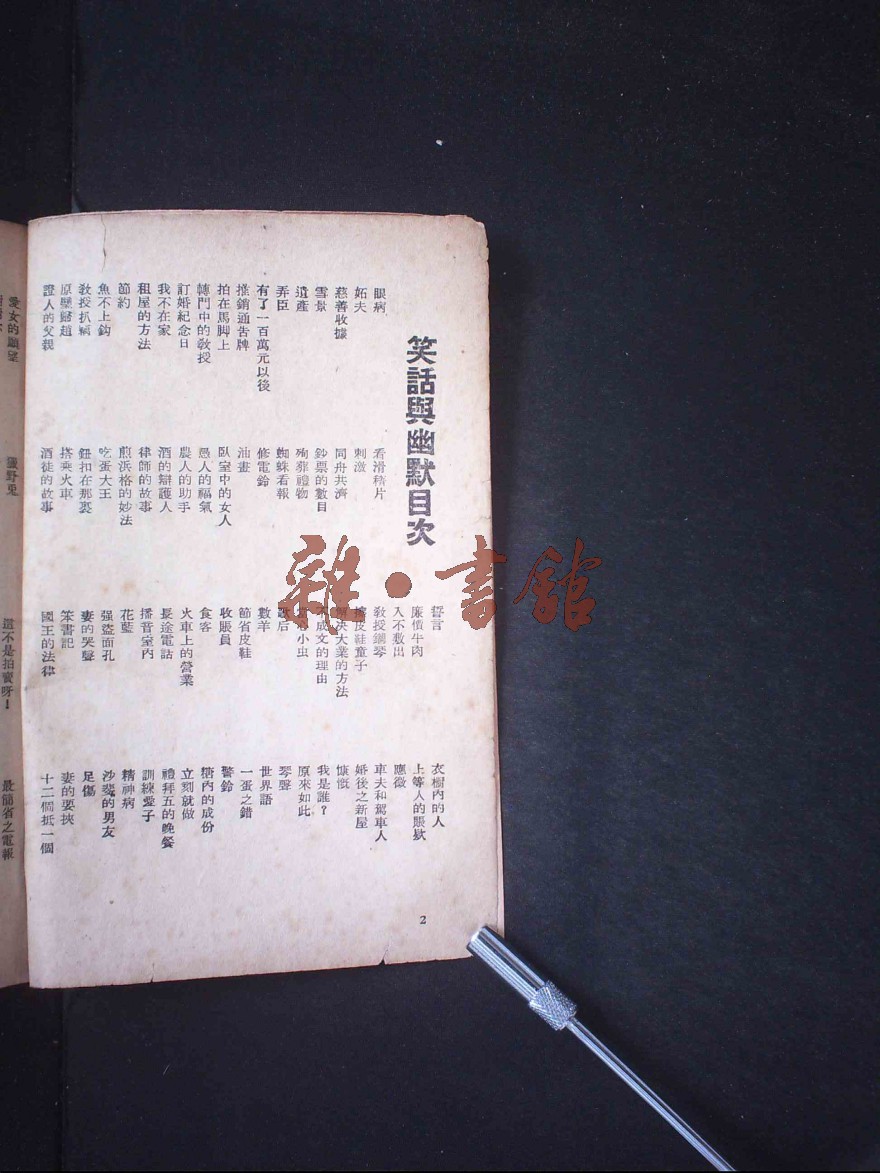 笑話與幽默目次
眼病
妬夫
慈善收據
雪景
遺產
弄臣
有了一百萬元以後
推銷通告牌
拍在馬脚上
轉門中的教授
訂婚紀念日
我不在家
租屋的方法
節約
魚不上鈎
教授扒竊
原璧歸趙
證人的父親
看滑稽片
刺激
同舟共濟
鈔票的數目
殉葬禮物
蜘蛛看報
修電鈴
油畫
臥室中的女人
愚人的福氣
農人的助手
酒的辯護人
律師的故事
煎浜格的妙法
吃蛋大王
鈕扣在那裏
搭乘火車
酒徒的故事
誓言
廉價牛肉
入不敷出
教授鋼琴
擦皮鞋童子
解決大業的方法
不成文的理由
小虫
數羊
節省皮鞋
收賬員
食客
火車上的營業
長途電話
播音室內
花籃
强盜面孔
妻的哭聲
笨書記
國王的法律
衣櫥內的人
上等人的賬欵
應徵
車夫和駕車人
婚後之新屋
慷慨
我是誰？
原來如此
琴聲
世界語
一蛋之錯
警鈴
糖內的成份
立刻就做
禮拜五的晚餐
訓練愛子
精神病
沙發的男友
足傷
妻的要挾
十二個抵一個
2
愛女的願望
獵野兎
這不是拍賣呀！
最簡省之電報
雜·書館